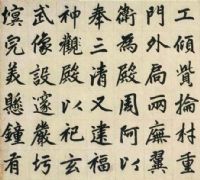 工傾貲掄材重
門外局兩廡翼
衛為殿周阿以
奉三清又建福
神觀殿以祀玄
武像設邃嚴圬
墁完美懸鐘有